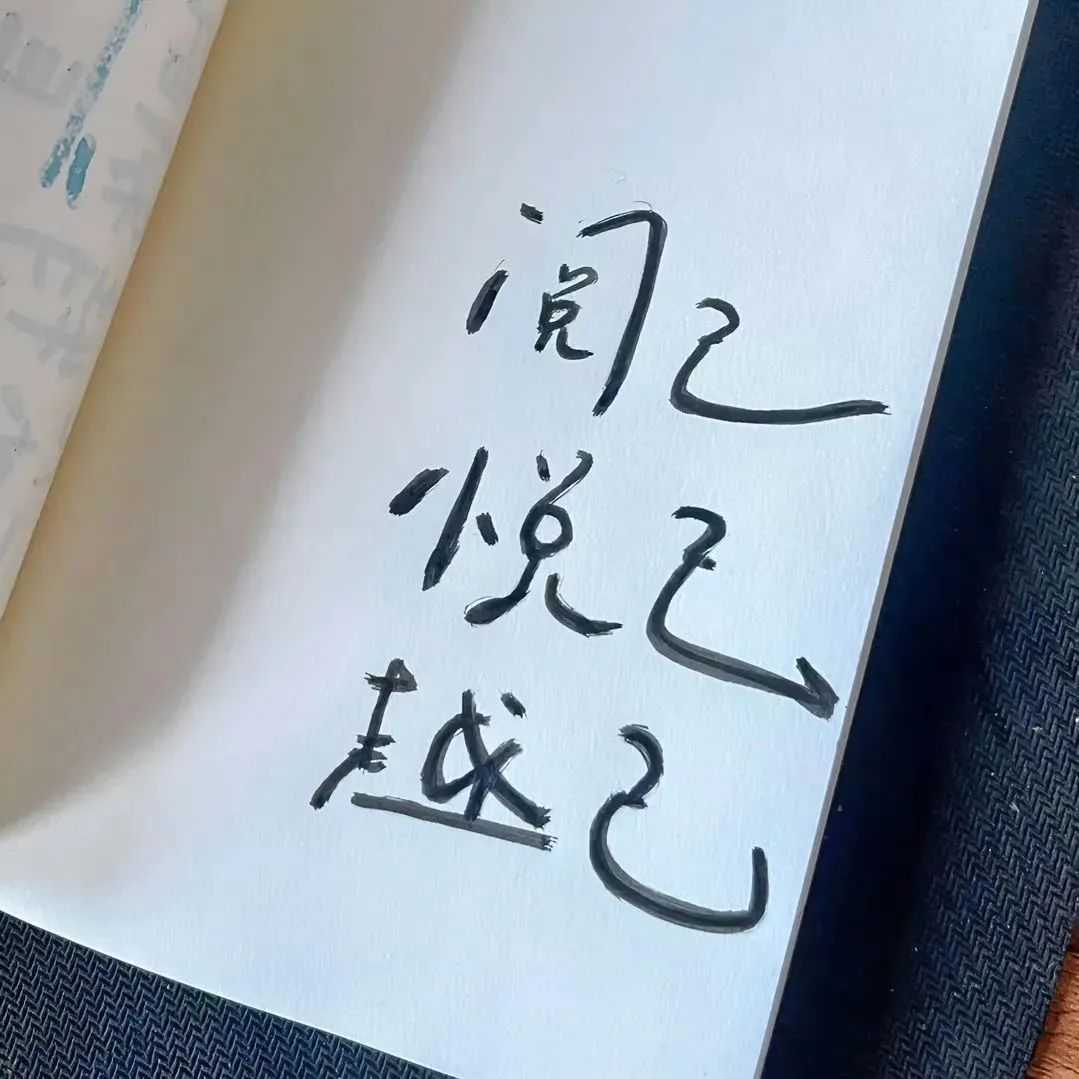 阅己
悦己
越己